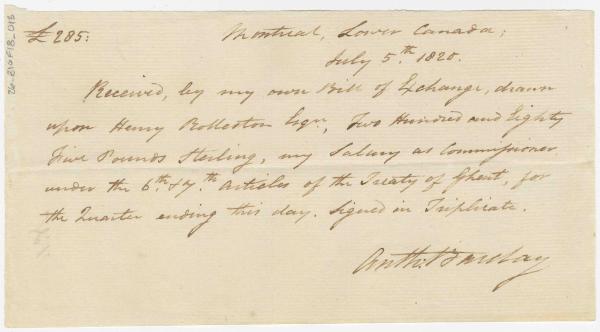 £285:
Montreal, Lower Canada;
July 5.th 1820.
Received, by my own Bill of Exchange, drawn
upon Henry Rolleston Esqr., Two Hundred and Eighty
Five Pounds Sterling, my Salary as Commissioner
under the 6.th & 7.th Articles of the Treaty of Ghent, for
the Quarter ending this day. Signed in Triplicate.
Anth: Barclay